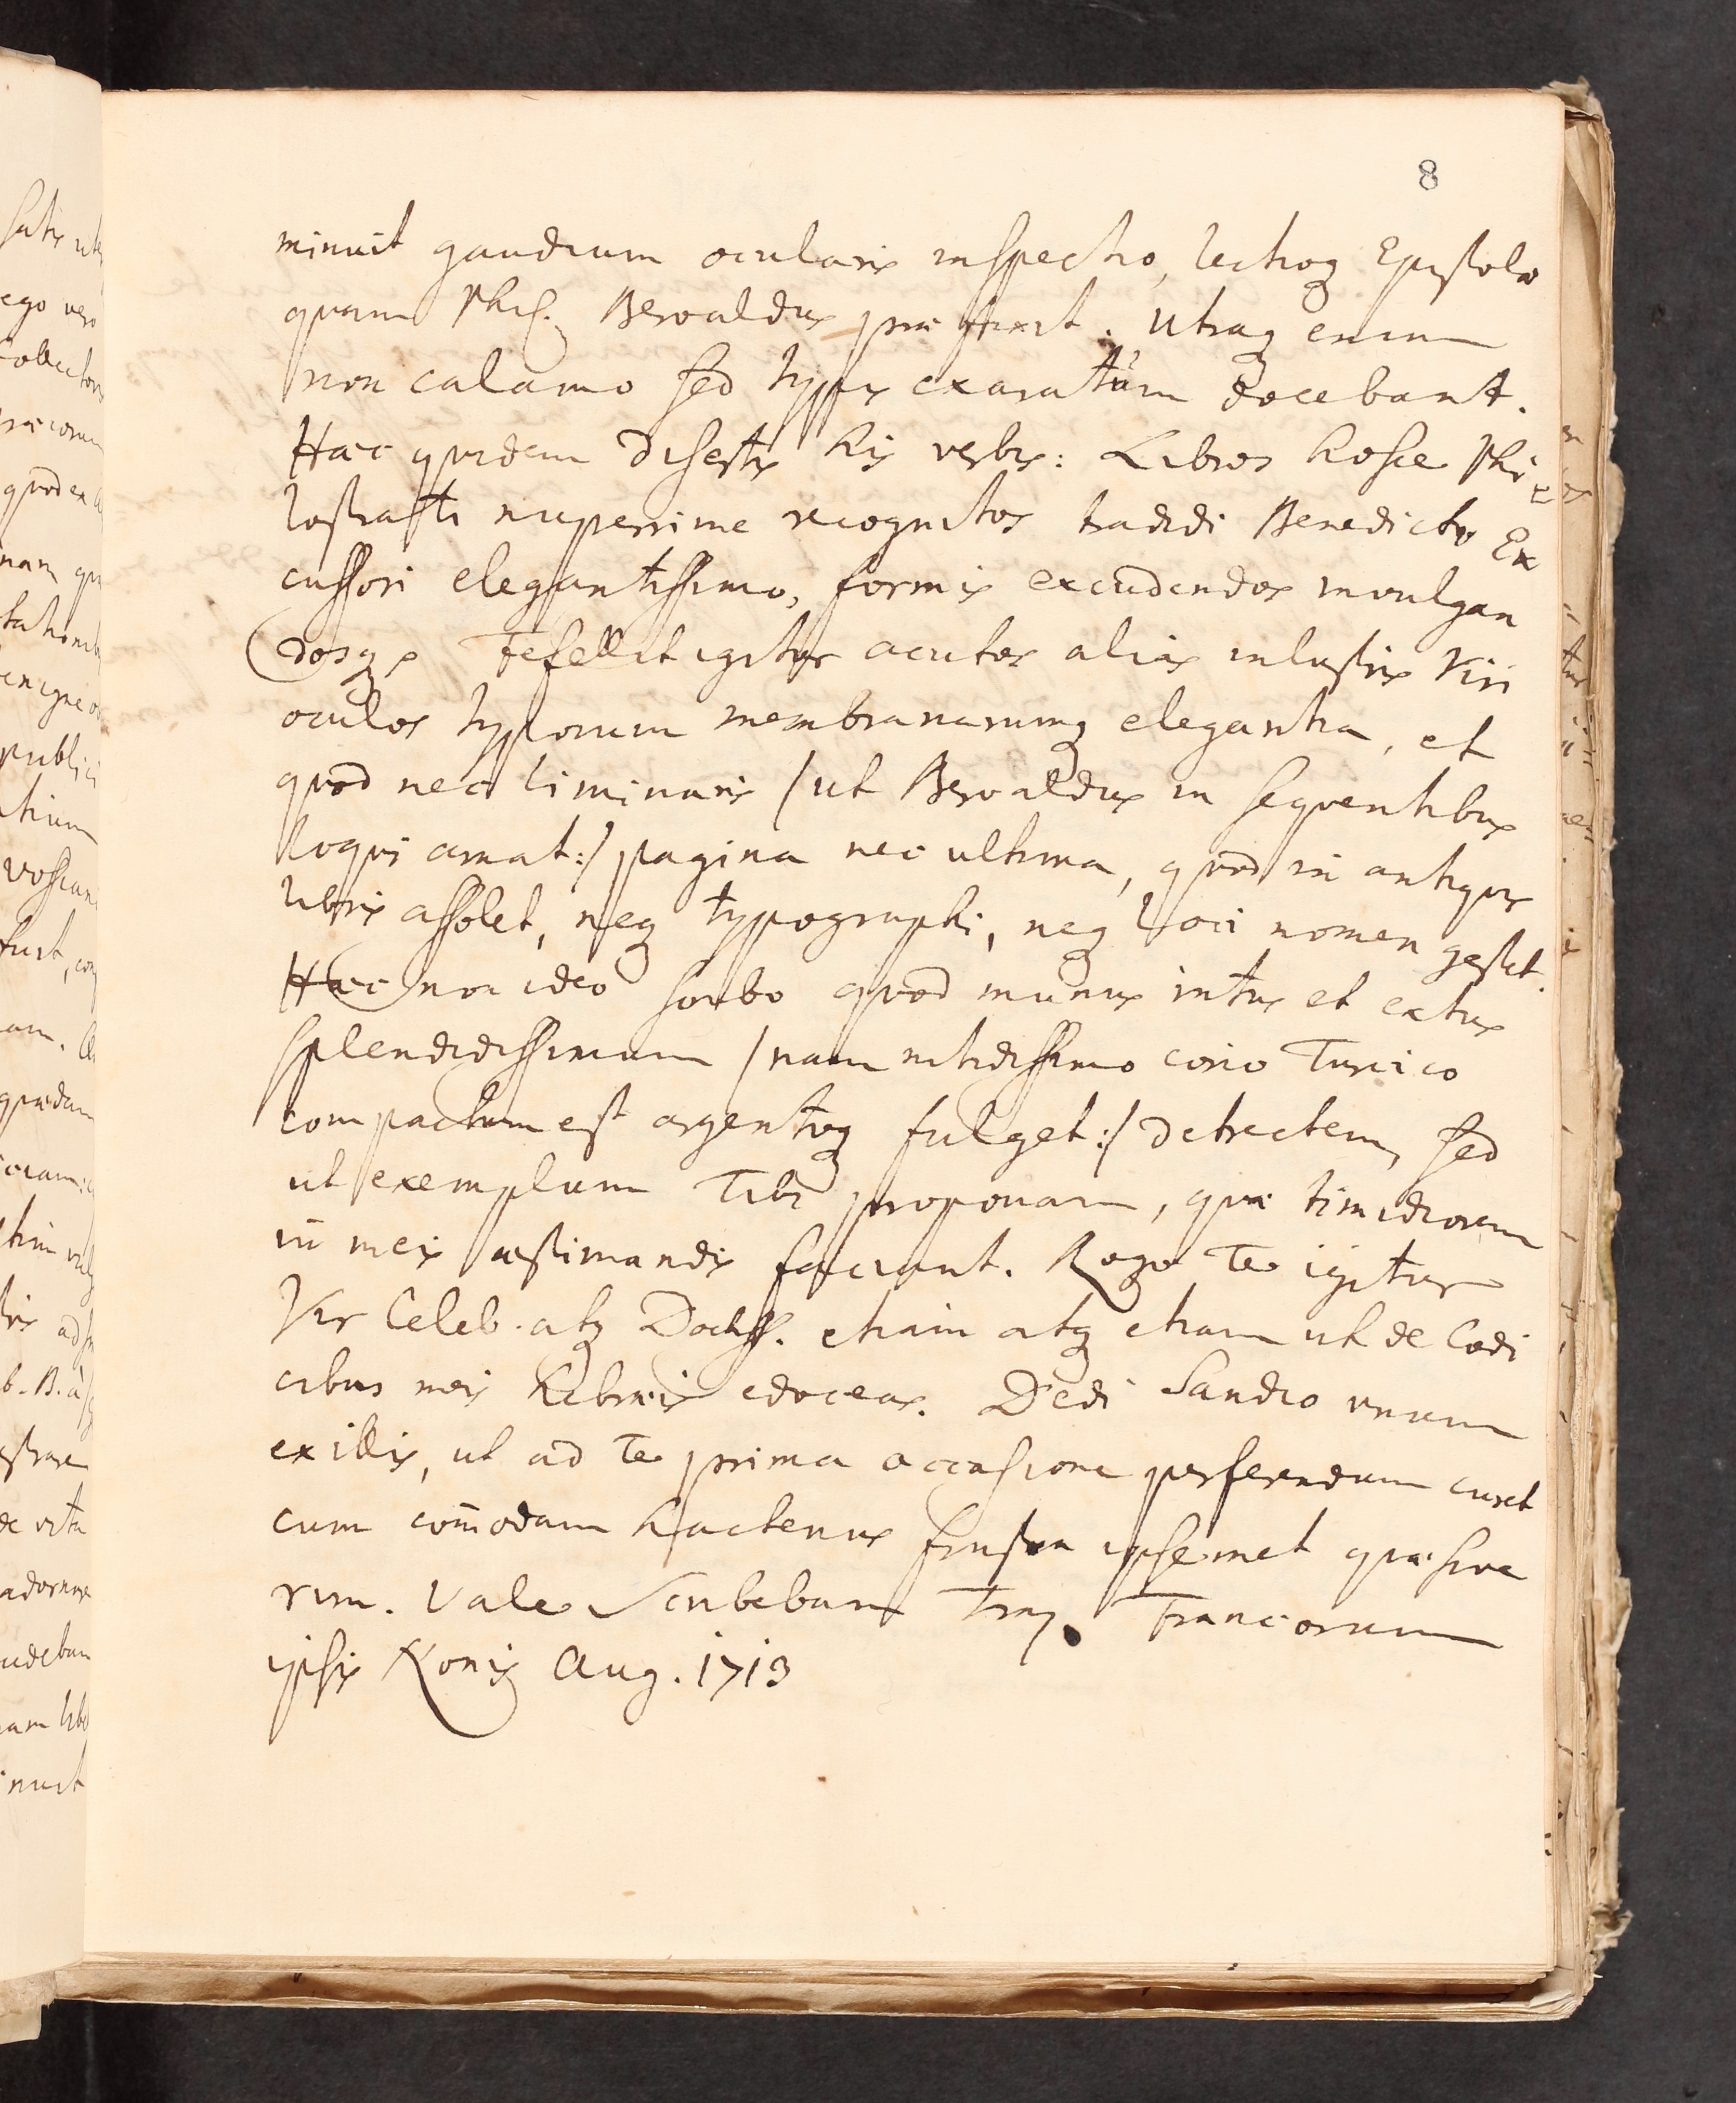 8
minuit gaudium ocularis inspectio, lectioq Epistolae
quam Phil. Beroaldus praefixit. Utraq enim
non calamo sed typis exaratum docebant.
Haec quidem disertis his verbis: Libros hosce Phi=
lostrati nuperrime recognitos tradidi Benedicto Ex
cussori elegantissimo, formis excudendos invulgan
dosq. Fefellit igitur acutos alias inlustris Viri
oculos typorum membranarumq elegantia, et
quod nec liminaris /ut Beroaldus in sequentibus
loqui amat:/ pagina nec ultima, quod in antiquis
libris assolet, neq typographi, neq loci nomen gestet.
Haec non ideo scribo quod munus intus et extus
splendidissimum /nam nitidissimo corio Turcico
compactum est argentoq fulget:/ detrectem, sed
ut exemplum Tibi proponam, quae timidiorem
in meis aestimandis faciant. Rogo Te igitur
Vir Celeb. atq Doctiss. etiam atq etiam ut de Codi
cibus meis Hebraeis edoceas. Dedi Sandio unum
ex illis, ut ad Te prima occasione perferendum curet
cum com̄odam hactenus frustra ipsemet quaesive
rim. Vale Scribebam Traj. Francorum
ipsis Konis Aug. 1713
satis
ego vero
publici
quaedam
de vita
nuit